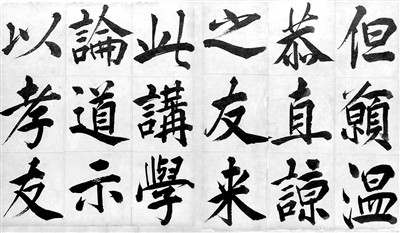 但願溫
恭直諒
之友来
此講學
論道示
以孝友